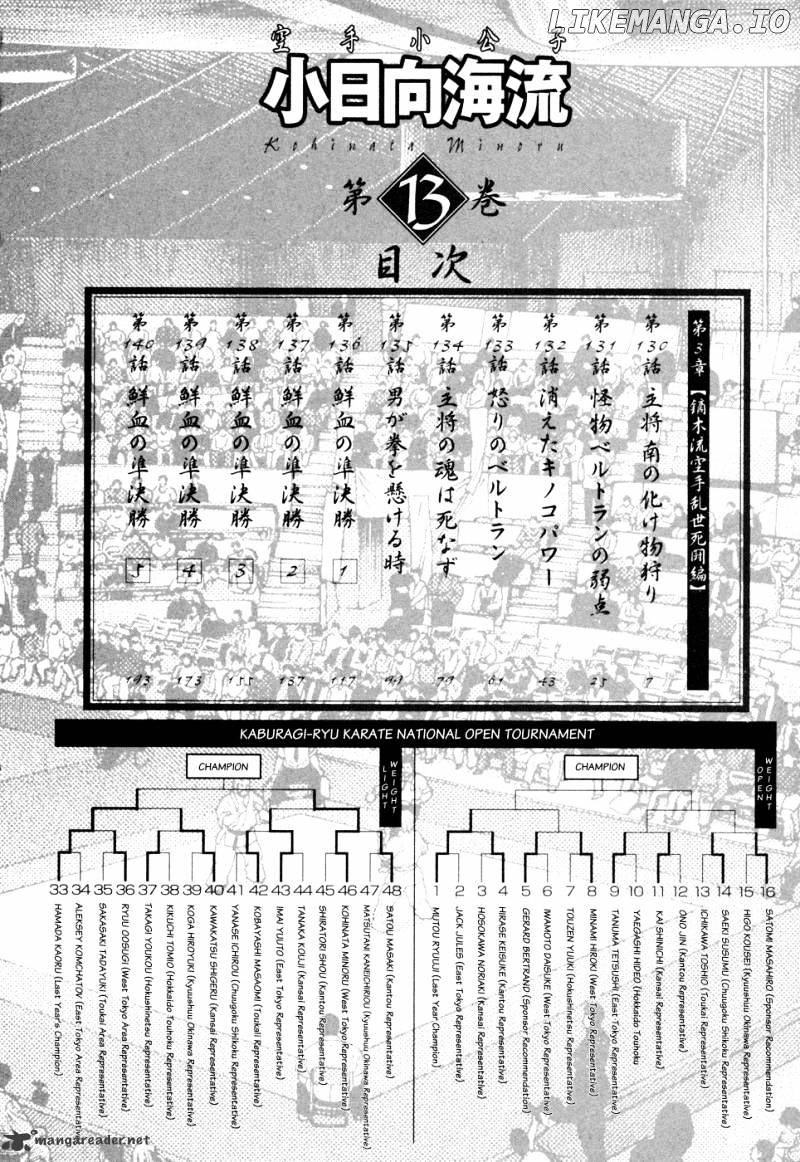 LIKEMANGA.IO
空手小公子
小日向海流
Kohinata Minoru
第13巻
目次
第3章【鏑木流空手乱世死闘編】
第130話 主将 南の化け物狩り 7
第131話 怪物ベルトランの弱点 25
第132話 消えたキノコパワー 43
第133話 怒りのベルトラン 61
第134話 主将の魂は死なず 79
第135話 男が拳を懸ける時
第136話 鮮血の準決勝 1 117
第137話 鮮血の準決勝 2 137
第138話 鮮血の準決勝 3 155
第139話 鮮血の準決勝 4 173
第140話 鮮血の準決勝 5 193
KABURAGI-RYU KARATE NATIONAL OPEN TOURNAMENT
CHAMPION
LIGHT WEIGHT
33 HAMADA KAORU (Last Year's Champion)
34 ALEKSEY KONCHATOV (East Tokyo Area Representative)
35 SAKASAKI TADAYUKI (Toukai Area Representative)
36 RYUU OOSUGI (West Tokyo Area Representative)
37 TAKAGI YOUKOU (Hokushinetsu Representative)
38 KIKUCHI TOMIO (Hokkaido Touhoku Representative)
39 KOGA HIROYUKI (Kyuushuu Okinawa Representative)
40 KAWAKATSU SHIGERU (Kansai Representative)
41 YANASE ICHIROU (Chuugoku Shikoku Representative)
42 KOBAYASHI MASAOMI (Toukai Representative)
43 IMAI YUUTO (East Tokyo Representative)
44 TANAKA KOUJI (Kansai Representative)
45 SHIRATORI SHOU (Kantou Representative)
46 KOHINATA MINORU (West Tokyo Representative)
47 MATSUTANI KANEICHIROU (Kyuushuu Okinawa Representative)
48 SATOU MASAKI (Kantou Representative)
CHAMPION
OPEN WEIGHT
1 MUTOU RYUUJI (Last Year Champion)
2 JACK JULES (East Tokyo Representative)
3 HOSOKAWA NORIAKI (Kansai Representative)
4 HIRASE KEISUKE (Kantou Representative)
5 GERARD BERTRAND (Sponsor Recommendation)
6 IWAMOTO DAISUKE (West Tokyo Representative)
7 TOUZEN YUUKI (Hokushinetsu Representative)
8 MINAMI HIROKI (West Tokyo Representative)
9 TANUMA TETSUSHI (East Tokyo Representative)
10 YAEGASHI HIDEO (Hokkaido Touhoku
11 KAI SHINICHI (Kansai Representative)
12 ONO JIN (Kantou Representative)
13 ICHIKAWA TOSHIO (Toukai Representative)
14 SAEKI SUSUMU (Chuugoku Shikoku Representative)
15 HIGO KOUSEI (Kyuushuu Okinawa Representative)
16 SATOMI MASAHIRO (Sponsor Recommendation)
mangareader.net